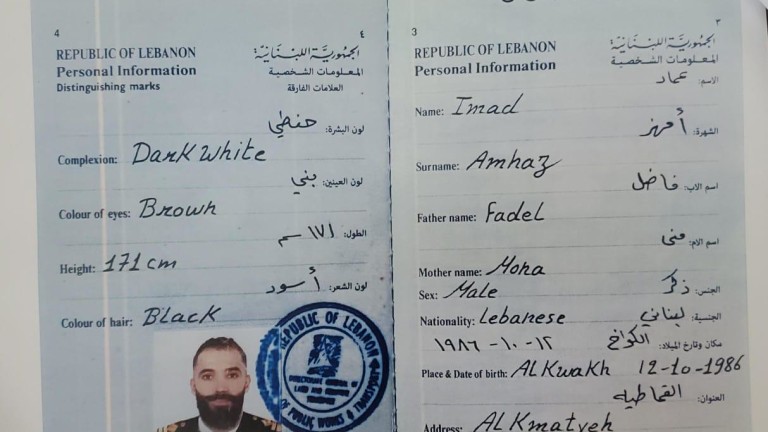 4
٤
REPUBLIC OF LEBANON
الجمهوريّة اللبنانيّة
Personal Information
المعلومات الشخصية
Distinguishing marks
العلامات الفارقة
لون البشرة: حنطي
Complexion: Dark White
لون العينين: بني
Colour of eyes: Brown
الطول: ١٧١ سم
Height: 171 cm
لون الشعر: أسود
Colour of hair: Black
REPUBLIC OF LEBANON
OF PUBLIC WORKS &
3
٣
REPUBLIC OF LEBANON
الجمهوريّة اللبنانيّة
Personal Information
المعلومات الشخصية
الاسم: عماد
Name: Imad
الشهرة: أمهز
Surname: Amhaz
اسم الاب: فاضل
Father name: Fadel
اسم الام: منى
Mother name: Mona
الجنس: ذكر
Sex: Male
الجنسية: لبناني
Nationality: Lebanese
مكان وتاريخ الميلاد: الكواخ ١٢-١٠-١٩٨٦
Place & Date of birth: AL Kwakh 12-10-1986
العنوان: القماطيه
Address: AL Kmatyeh